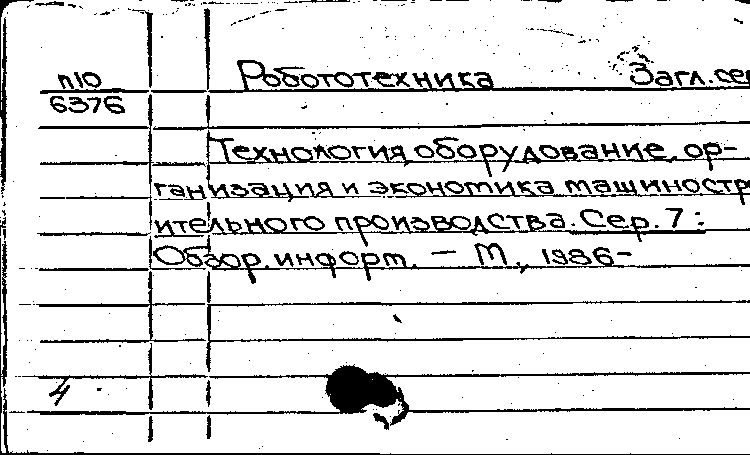 п10 Робототехника Загл. сер
6376
Технология, оборудование, ор-
ганизация и экономика машиностр
ительного производства. Сер. 7:
Обзор. информ. — М., 1986-
4